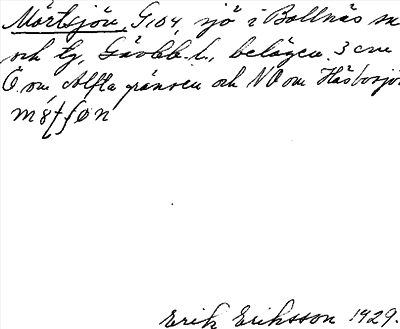 Mörtsjön, G104, sjö i Bollnäs sn
och tg, Gävlb. l., belägen 3 cm
Ö. om Alfta gränsen och NO om Hästasjön
Erik Eriksson 1929.